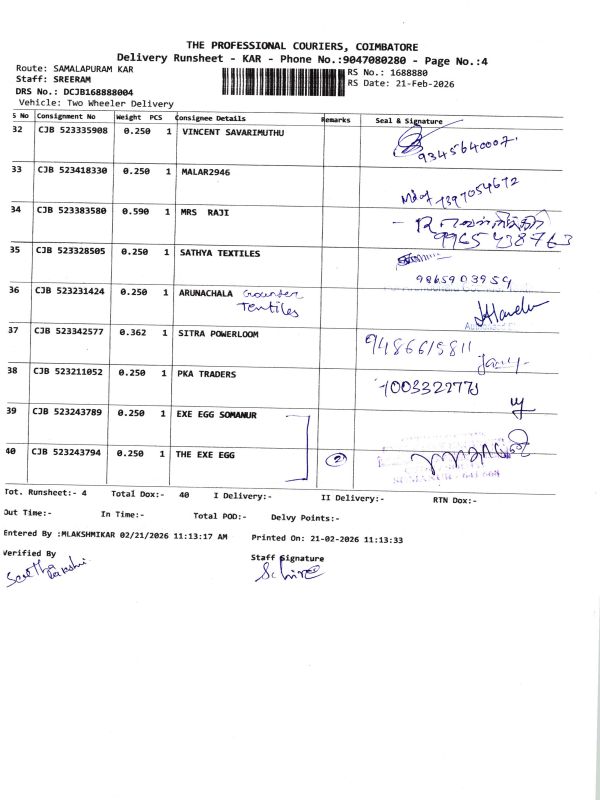 THE PROFESSIONAL COURIERS, COIMBATORE
Delivery Runsheet - KAR - Phone No.:9047080280 - Page No.:4
Route: SAMALAPURAM KAR
RS No.: 1688880
Staff: SREERAM
RS Date: 21-Feb-2026
DRS No.: DCJB168888004
Vehicle: Two Wheeler Delivery
S No Consignment No Weight PCS Consignee Details Remarks Seal & Signature
32 CJB 523335908 0.250 1 VINCENT SAVARIMUTHU
9345640007.
33 CJB 523418330 0.250 1 MALAR2946
7397054672
34 CJB 523383580 0.590 1 MRS RAJI
9965438763
35 CJB 523328505 0.250 1 SATHYA TEXTILES
9865903959
36 CJB 523231424 0.250 1 ARUNACHALA Gounder
Textiles
37 CJB 523342577 0.362 1 SITRA POWERLOOM
9486615811
38 CJB 523211052 0.250 1 PKA TRADERS
39 CJB 523243789 0.250 1 EXE EGG SOMANUR
40 CJB 523243794 0.250 1 THE EXE EGG 2
Tot. Runsheet:- 4 Total Dox:- 40 I Delivery:- II Delivery:- RTN Dox:-
Out Time:- In Time:- Total POD:- Delvy Points:-
Entered By :MLAKSHMIKAR 02/21/2026 11:13:17 AM Printed On: 21-02-2026 11:13:33
Verified By Staff Signature